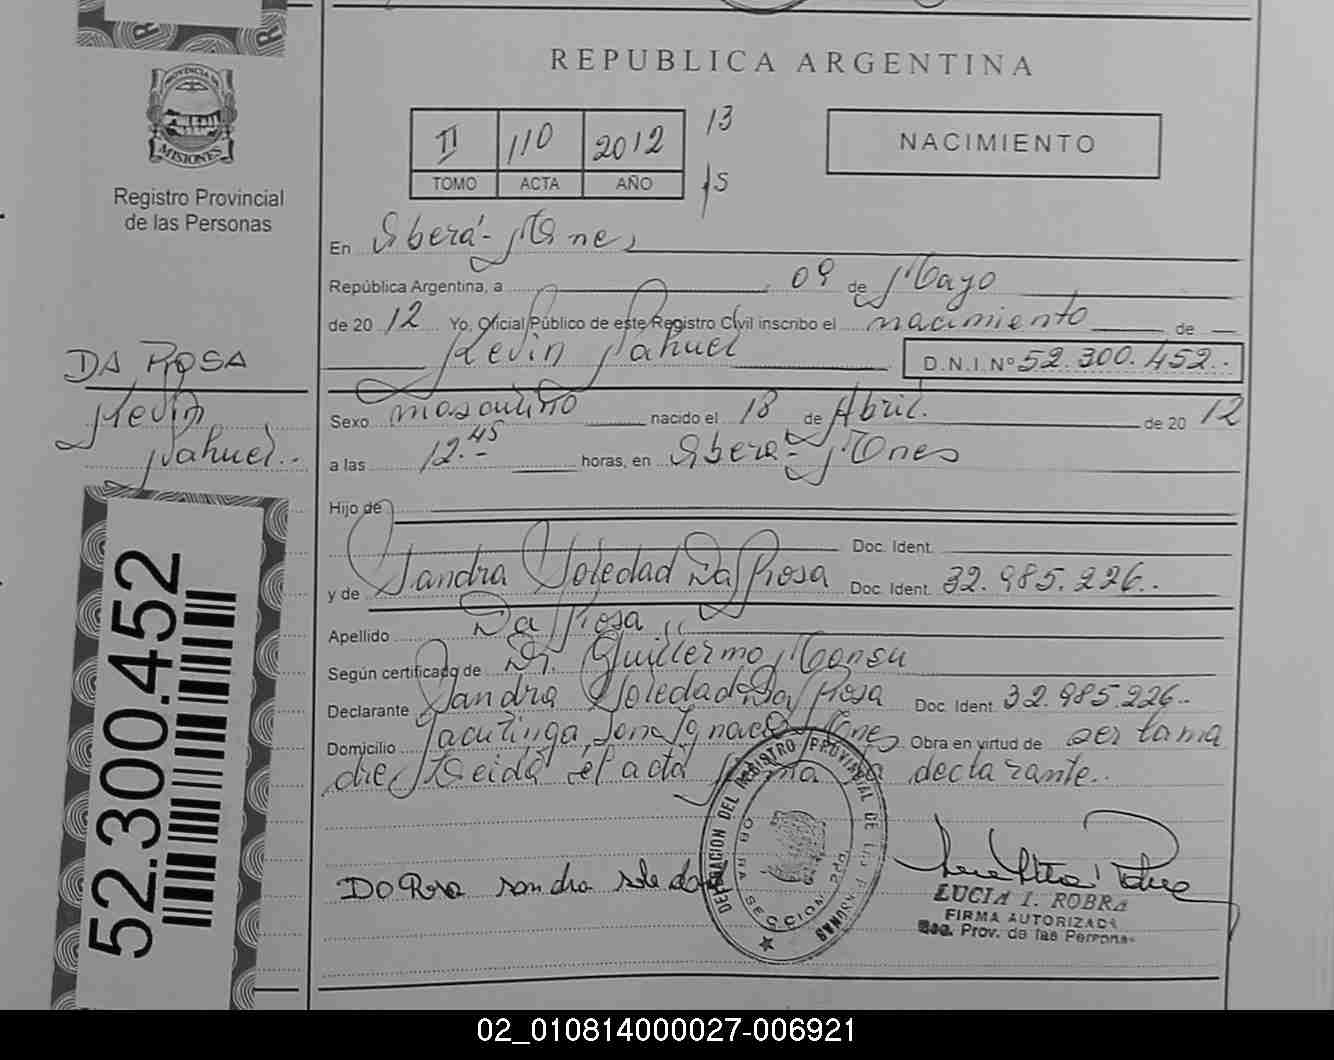 PROVINCIA DE
MISIONES
Registro Provincial
de las Personas
REPUBLICA ARGENTINA
II 110 2012 13
TOMO ACTA AÑO 15
NACIMIENTO
En Oberá - Mnes
República Argentina, a 09 de Mayo
de 2012 Yo, Oficial Público de este Registro Civil inscribo el nacimiento de
Kevin Nahuel D.N.I. Nº 52.300.452.-
DA ROSA
Kevin
Nahuel.-
Sexo masculino nacido el 18 de Abril. de 2012
a las 12.45 horas, en Oberá - Mnes
Hijo de
Doc. Ident.
y de Sandra Soledad Da Rosa Doc. Ident. 32.985.226.-
Apellido Da Rosa
Según certificado de Dr. Guillermo
Declarante Sandra Soledad Da Rosa Doc. Ident. 32.985.226.-
Domicilio Jacutinga, San Ignacio Mnes. Obra en virtud de ser la ma
dre, Leida el acta firma la declarante..
52.300.452
Da Rosa sandra soledad
DELEGACION DEL REGISTRO PROVINCIAL DE LAS PERSONAS
OBERA SECCION
LUCIA I. ROBRA
FIRMA AUTORIZADA
Reg. Prov. de las Personas
02_010814000027-006921